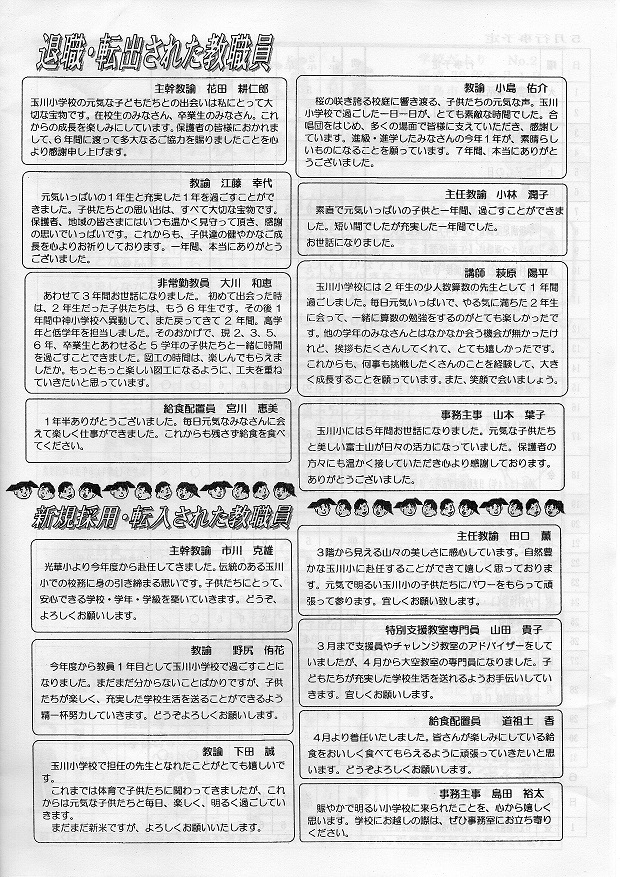 退職・転出された教職員
主幹教諭 花田 耕仁郎
玉川小学校の元気な子どもたちとの出会いは私にとって大
切な宝物です。在校生のみなさん、卒業生のみなさん、これ
からの成長を楽しみにしています。保護者の皆様におかれま
して、6年間に渡って多大なるご協力を賜りましたことを心
より感謝申し上げます。
教諭 江藤 幸代
元気いっぱいの1年生と充実した1年を過ごすことがで
きました。子供たちとの思い出は、すべて大切な宝物です。
保護者、地域の皆さまにはいつも温かく見守って頂き、感謝
の思いでいっぱいです。これからも、子供達の健やかなご成
長を心よりお祈りしております。一年間、本当にありがとう
ございました。
非常勤教員 大川 和恵
あわせて3年間お世話になりました。初めて出会った時
は、2年生だった子供たちは、もう6年生です。その後1
年間中神小学校へ異動して、また戻ってきて2年間。高学
年と低学年を担当しました。そのおかげで、現2、3、5、
6年、卒業生とあわせると5学年の子供たちと一緒に時間
を過ごすことできました。図工の時間は、楽しんでもらえま
したか。もっともっと楽しい図工になるように、工夫を重ね
ていきたいと思っています。
給食配置員 宮川 恵美
1年半ありがとうございました。毎日元気なみなさんに会
えて楽しく仕事ができました。これからも残さず給食を食べ
てください。
教諭 小島 佑介
桜の咲き誇る校庭に響き渡る、子供たちの元気な声。玉川
小学校で過ごした一日一日が、とても素敵な時間でした。合
唱団をはじめ、多くの場面で皆様に支えていただき、感謝し
ています。進級・進学したみなさんの今年1年が、素晴らし
いものになることを願っています。7年間、本当にありがと
うございました。
主任教諭 小林 潤子
素直で元気いっぱいの子供と一年間、過ごすことができま
した。短い間でしたが充実した一年間でした。
お世話になりました。
講師 萩原 陽平
玉川小学校には2年生の少人数算数の先生として1年間
過ごしました。毎日元気いっぱいで、やる気に満ちた2年生
に会って、一緒に算数の勉強をするのがとても楽しかったで
す。他の学年のみなさんとはなかなか会う機会が無かったけ
れど、挨拶もたくさんしてくれて、とても嬉しかったです。
これからも、何事も挑戦したくさんのことを経験して、大き
く成長することを願っています。また、笑顔で会いましょう。
事務主事 山本 葉子
玉川小には5年間お世話になりました。元気な子供たち
と美しい富士山が日々の活力になっていました。保護者の
方々にも温かく接していただき心より感謝しております。
ありがとうございました。
新規採用・転入された教職員
主幹教諭 市川 克雄
光華小より今年度から赴任してきました。伝統のある玉川
小での校務に身の引き締まる思いです。子供たちにとって、
安心できる学校・学年・学級を築いていきます。どうぞ、
よろしくお願いします。
教諭 野尻 侑花
今年度から教員1年目として玉川小学校で過ごすことに
なりました。まだまだ分からないことばかりですが、子供
たちが楽しく、充実した学校生活を送ることができるよう
精一杯努力していきます。どうぞよろしくお願いします。
教諭 下田 誠
玉川小学校で担任の先生となれたことがとても嬉しいで
す。
これまでは体育で子供たちに関わってきましたが、これ
からは元気な子供たちと毎日、楽しく、明るく過ごしてい
きます。
まだまだ新米ですが、よろしくお願いいたします。
主任教諭 田口 薫
3階から見える山々の美しさに感心しています。自然豊
かな玉川小に赴任することができて嬉しく思っておりま
す。元気で明るい玉川小の子供たちにパワーをもらって頑
張って参ります。宜しくお願い致します。
特別支援教室専門員 山田 貴子
3月まで支援員やチャレンジ教室のアドバイザーをして
いましたが、4月から大空教室の専門員になりました。子
どもたちが充実した学校生活を送れるようお手伝いしてい
きます。宜しくお願いします。
給食配置員 道祖土 香
4月より着任いたしました。皆さんが楽しみにしている給
食をおいしく食べてもらえるように頑張っていきたいと思
います。どうぞよろしくお願いします。
事務主事 島田 裕太
賑やかで明るい小学校に来られたことを、心から嬉しく
思います。学校にお越しの際は、ぜひ事務室にお立ち寄り
ください。